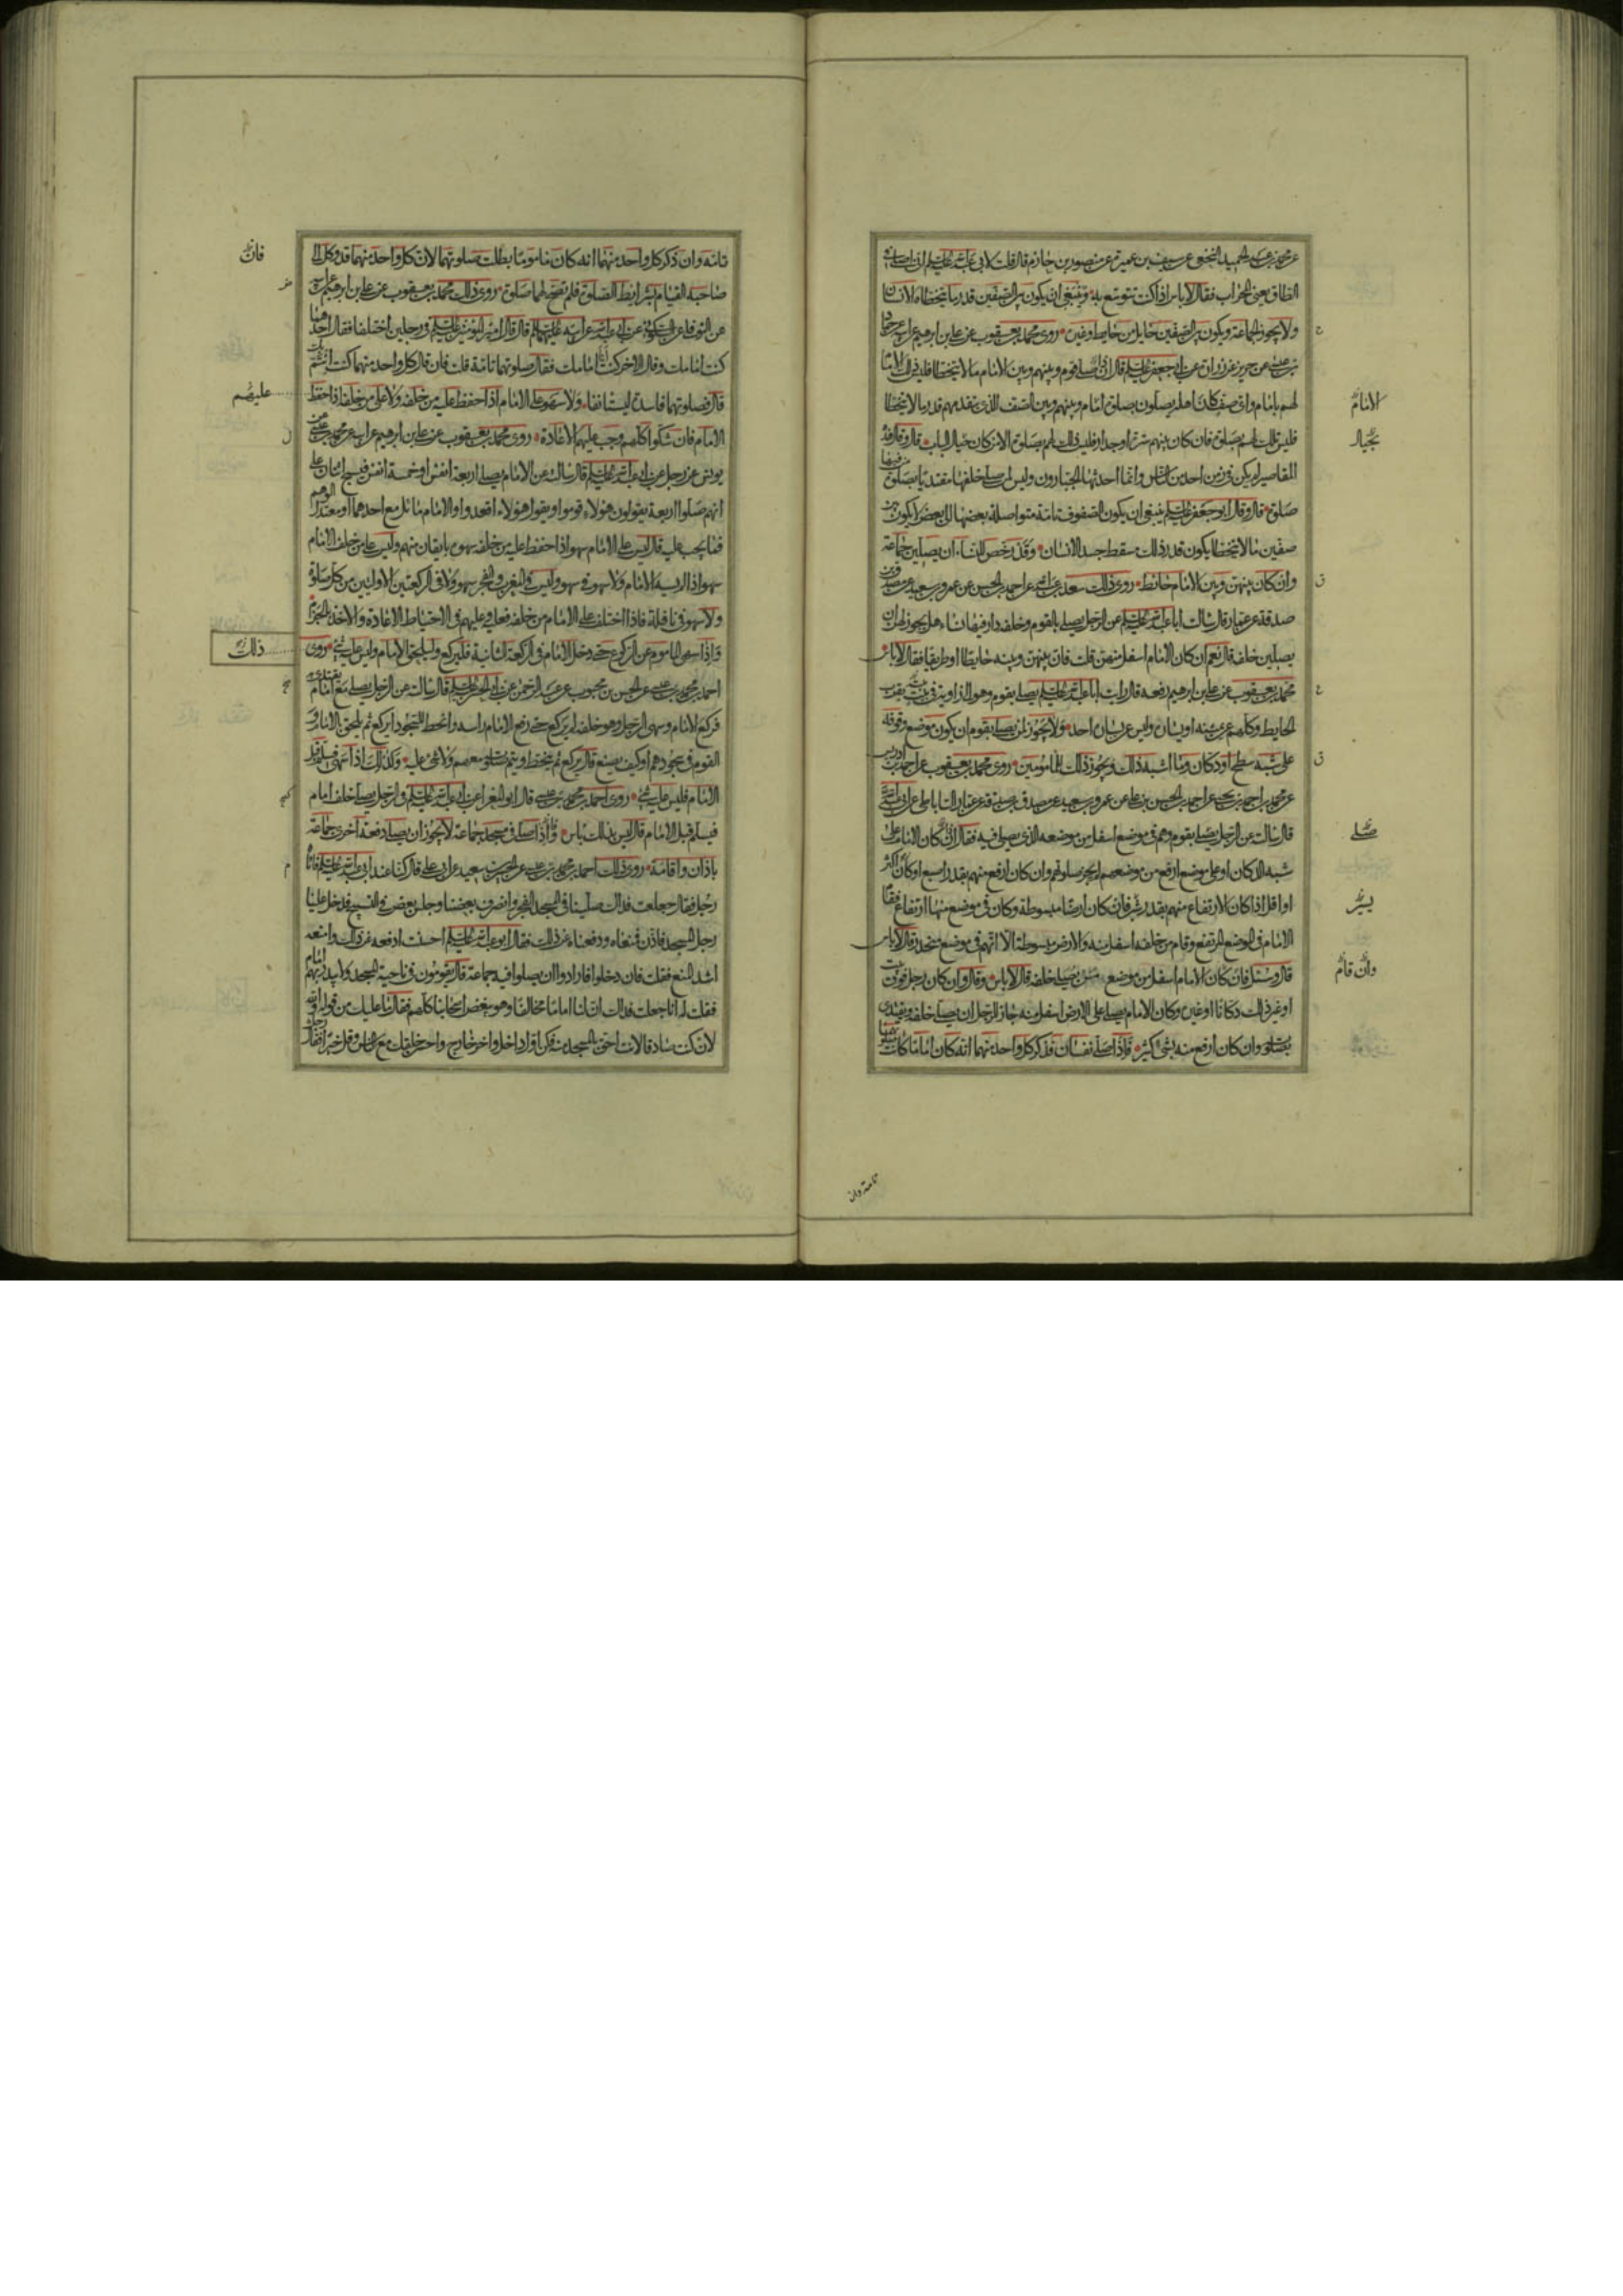 عن محمد بن عبد الحميد النخعي عن سيف بن عميرة عن منصور بن حازم قال قلت لابي عبد الله عليه السلم اني اصلي في
الطاق يعني المحراب فقال لا باس اذا كنت تتوسع به وينبغي ان يكون بين الصفين قدر ما يتخطاه الانسان
ولا يجوز لجماعة ويكون بين الصفين حايل من حايط او غيره روى محمد بن يعقوب عن علي بن ابرهيم عن ابيه عن حماد
بن عيسى عن حريز عن زرارة عن ابي جعفر عليه السلم قال ان صلى قوم وبينهم وبين الامام ما لا يتخطا فليس ذلك الامام
لهم بامام واي صف كان اهله يصلون بصلوة امام وبينهم وبين الصف الذي يتقدمهم قدر ما لا يتخطا
فليس تلك لهم بصلوة فان كان بينهم سترة او جدار فليس ذلك لهم بصلوة الا من كان حيال الباب قال وقال هذه
المقاصير لم يكن في زمن احد من الناس وانما احدثها الجبارون وليس لمن صلى خلفها مقتديا بصلوة من فيها
صلوة قال وقال ابو جعفر عليه السلم ينبغي ان يكون الصفوف تامة متواصلة بعضها الى بعض لا يكون بين
صفين ما لا يتخطا يكون قدر ذلك مسقط جسد الانسان وقد رخص للنساء ان يصلين جماعة
وان كان بينهن وبين الامام حائط روى ذلك سعد بن عبد الله عن احمد بن الحسن عن عمرو بن سعيد عن مصدق بن
صدقة عن عمار قال سالت ابا عبد الله عليه السلم عن الرجل يصلي بالقوم وخلفه دار فيها نساء هل يجوز لهن ان
يصلين خلفه قال نعم ان كان الامام اسفل منهن قلت فان بينهن وبينه حايطا او طريقا فقال لا باس
محمد بن يعقوب عن علي بن ابرهيم رفعه قال رايت ابا عبد الله عليه السلم يصلي بقوم وهو الى زاوية في بيته بقرب
الحايط وكلهم عن يمينه وليس عن يساره احد ولا يجوز لمن يصلي بقوم ان يكون موضع وقوفه
على شبه سطح او دكان وما اشبه ذلك ويجوز ذلك للمامومين روى محمد بن يعقوب عن احمد بن ادريس
عن محمد بن احمد بن يحيى عن احمد بن الحسن بن علي عن عمرو بن سعيد عن مصدق بن صدقة عن عمار الساباطي عن ابي عبد الله
قال سالت عن الرجل يصلي بقوم وهم في موضع اسفل من موضعه الذي يصلي فيه فقال ان كان الامام على
شبه الدكان او على موضع ارفع من موضعهم لم يجز صلوتهم وان كان ارفع منهم بقدر اصبع او كان اكثر
او اقل اذا كان الارتفاع منهم بقدر شبر فان كان ارضا مبسوطة وكان في موضع منها ارتفاع فقام
الامام في الموضع المرتفع وقام من خلفه اسفل منه والارض مبسوطة الا انهم في موضع منحدر قال لا باس
قال وسئل فان كان الامام اسفل من موضع من يصلي خلفه قال لا باس وقال وان كان رجل فوق بيت
او غير ذلك دكانا او غيره وكان الامام يصلي على الارض اسفل منه جاز للرجل ان يصلي خلفه ويقتدي
بصلوته وان كان ارفع منه بشئ كثير فاذا صلى نفسان فذكر كل واحد منهما انه كان اماما كانت صلوتهما
الامام
بحيال
صلى
يسير
وان قام
تامة وان
تامة وان ذكر كل واحد منهما انه كان ماموما بطلت صلوتهما لان كل واحد منهما قد وكل الى
صاحبه القيام بشرايط الصلوة فلم تصح لهما صلوة روى ذلك محمد بن يعقوب عن علي بن ابرهيم عن ابيه
عن النوفلي عن السكوني عن ابي عبد الله عن ابيه عليهما السلم قال قال امير المؤمنين عليه السلم في رجلين اختلفا فقال احدهما
كنت امامك وقال الاخر كنت انا امامك فقال صلوتهما تامة قلت فان قال كل واحد منهما كنت ائتم بك
قال فصلوتهما فاسدة ليستانفا ولا سهو على الامام اذا حفظ عليه من خلفه ولا على من خلفه اذا حفظ
الامام فان شكوا كلهم وجب عليهم الاعادة روى محمد بن يعقوب عن علي بن ابرهيم عن ابيه عن محمد بن عيسى عن
يونس عن رجل عن ابي عبد الله عليه السلم قال سالته عن الامام يصلي باربعة انفس او خمسة انفس فيسبح اثنان على
انهم صلوا اربعة يقولون هؤلاء قوموا ويقول هؤلاء اقعدوا والامام مائل مع احدهما او معتدل الوهم
فما يجب عليه قال ليس على الامام سهو اذا حفظ عليه من خلفه سهوه بايقان منهم وليس على من خلف الامام
سهو اذا لم يسه الامام ولا سهو في سهو وليس في المغرب والفجر سهو ولا في الركعتين الاوليين من كل صلوة
ولا سهو في نافلة فاذا اختلف على الامام من خلفه فعليه وعليهم في الاحتياط الاعادة والاخذ بالجزم
واذا سهى الماموم عن الركوع حتى دخل الامام في الركعة الثانية فليركع وليلحق الامام وليس عليه شئ روى
احمد بن محمد بن عيسى عن الحسن بن محبوب عن عبد الرحمن عن ابي الحسن عليه السلم قال سالت عن الرجل يصلي مع امام يقتدي به
فركع الامام وسهى الرجل وهو خلفه لم يركع حتى رفع الامام راسه وانحط للسجود ايركع ثم يلحق بالامام و
القوم في سجودهم او كيف يصنع قال يركع ثم ينحط ويتم صلوته معهم ولا شئ عليه وكذلك اذا سهى فسلم قبل
الامام فليس عليه شئ روى احمد بن محمد بن عيسى قال ابو المغرا عن ابي عبد الله عليه السلم في الرجل يصلي خلف امام
فيسلم قبل الامام قال ليس بذلك باس واذا صلى في مسجد جماعة لا يجوز ان يصلي دفعة اخرى جماعة
باذان واقامة روى ذلك احمد بن محمد بن عيسى عن الحسين بن سعيد عن ابي علي قال كنا عند ابي عبد الله عليه السلم فاتاه
رجل فقال جعلت فداك صلينا في المسجد الفجر وانصرف بعضنا وجلس بعض في التسبيح فدخل علينا
رجل المسجد فاذن فمنعناه ودفعناه عن ذلك فقال ابو عبد الله عليه السلم احسنت ادفعه عن ذلك وامنعه
اشد المنع فقلت فان دخلوا فارادوا ان يصلوا فيه جماعة قال يقومون في ناحية المسجد ولا يبدر بهم امام
فقلت له انا جعلت فداك ان لنا اماما مخالفا وهو يبغض اصحابنا كلهم فقال ما عليك من قوله والله
لان كنت صادقا لانت احق بالمسجد منه فكن اول داخل واخر خارج واحسن خلقك مع الناس وقل خيرا فقال رجل
فان
عليهم
ذلك